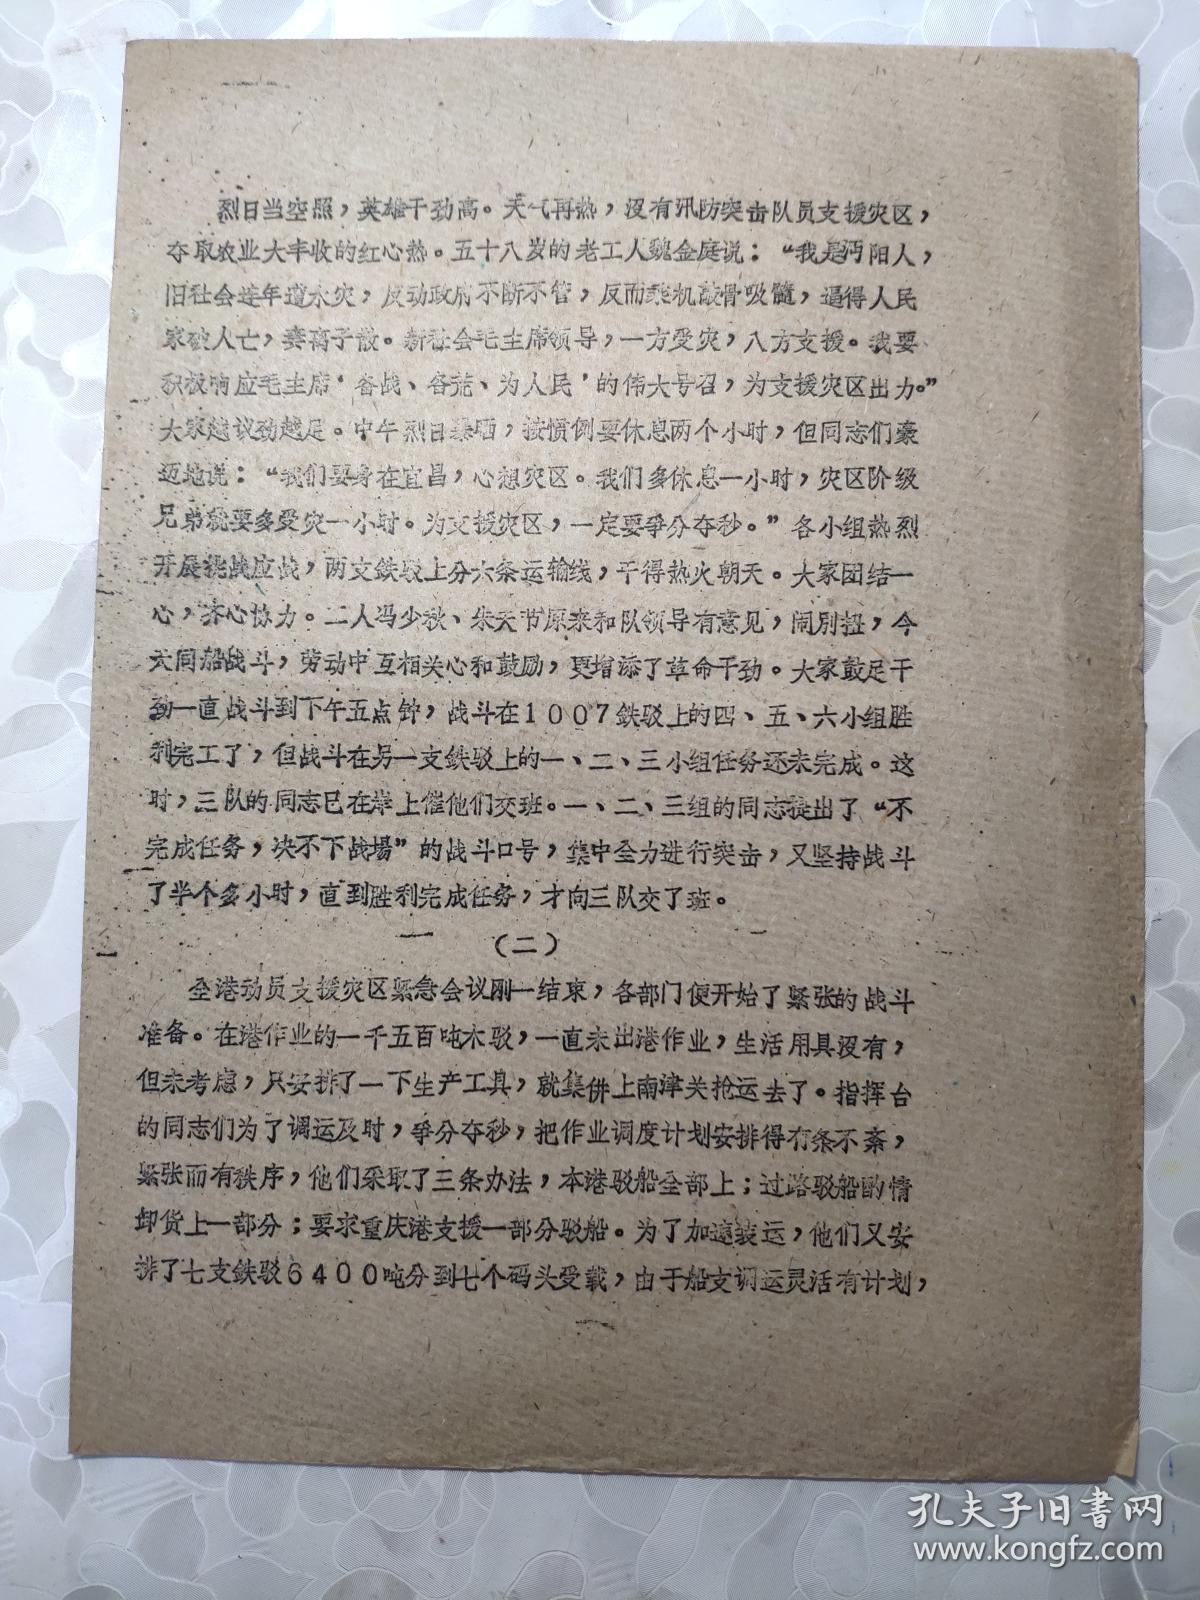 烈日当空照，英雄干劲高。天气再热，没有汛防突击队员支援灾区，
夺取农业大丰收的红心热。五十八岁的老工人魏金庭说：“我是沔阳人，
旧社会连年遭水灾，反动政府不断不管，反而乘机敲骨吸髓，逼得人民
家破人亡，妻离子散。新社会毛主席领导，一方受灾，八方支援。我要
积极响应毛主席‘备战、备荒、为人民’的伟大号召，为支援灾区出力。”
大家越议劲越足。中午烈日暴晒，按惯例要休息两个小时，但同志们豪
迈地说：“我们要身在宜昌，心想灾区。我们多休息一小时，灾区阶级
兄弟就要多受灾一小时。为支援灾区，一定要争分夺秒。”各小组热烈
开展挑战应战，两支鉄驳上分六条运输线，干得热火朝天。大家团结一
心，齐心协力。二人冯少秋、朱天节原来和队领导有意见，闹别扭，今
天同船战斗，劳动中互相关心和鼓励，更增添了革命干劲。大家鼓足干
劲一直战斗到下午五点钟，战斗在1007鉄驳上的四、五、六小组胜
利完工了，但战斗在另一支鉄驳上的一、二、三小组任务还未完成。这
时，三队的同志已在岸上催他们交班。一、二、三组的同志提出了“不
完成任务，决不下战場”的战斗口号，集中全力进行突击，又坚持战斗
了半个多小时，直到胜利完成任务，才向三队交了班。
（二）
全港动员支援灾区紧急会议刚一结束，各部门便开始了紧张的战斗
准备。在港作业的一千五百吨木驳，一直未出港作业，生活用具没有，
但未考虑，只安排了一下生产工具，就集併上南津关抢运去了。指挥台
的同志们为了调运及时，争分夺秒，把作业调度计划安排得有条不紊，
紧张而有秩序，他们采取了三条办法，本港驳船全部上；过路驳船酌情
卸货上一部分；要求重庆港支援一部分驳船。为了加速装运，他们又安
排了七支鉄驳6400吨分到七个码头受载，由于船支调运灵活有计划，
孔夫子旧書网
www.kongfz.com